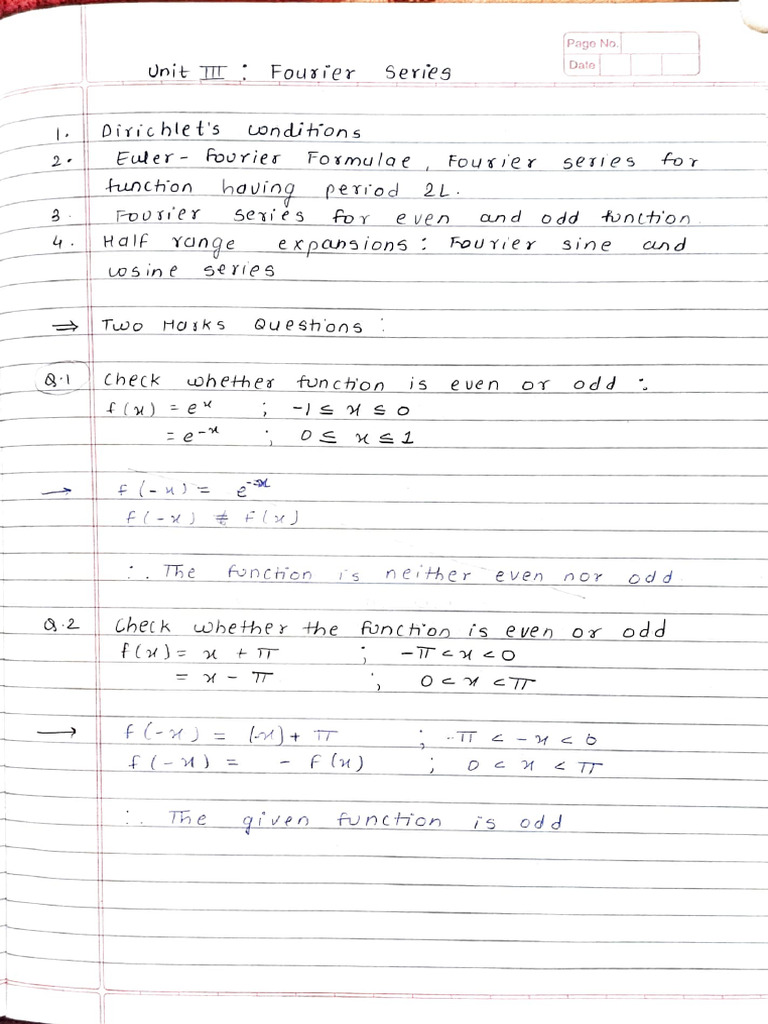 Page No.
Date
Unit III : Fourier Series
1. Dirichlet's conditions
2. Euler - Fourier Formulae, Fourier series for
function having period 2L.
3. Fourier series for even and odd function.
4. Half range expansions: Fourier sine and
cosine series
⇒ Two Marks Questions :
Q.1 Check whether function is even or odd :
f(x) = e^x ; -1 ≤ x ≤ 0
= e^-x ; 0 ≤ x ≤ 1
→ f(-x) = e^-x
f(-x) ≠ f(x)
∴ The function is neither even nor odd
Q.2 Check whether the function is even or odd
f(x) = x + π ; -π < x < 0
= x - π ; 0 < x < π
→ f(-x) = (-x) + π ; -π < -x < 0
f(-x) = - f(x) ; 0 < x < π
∴ The given function is odd